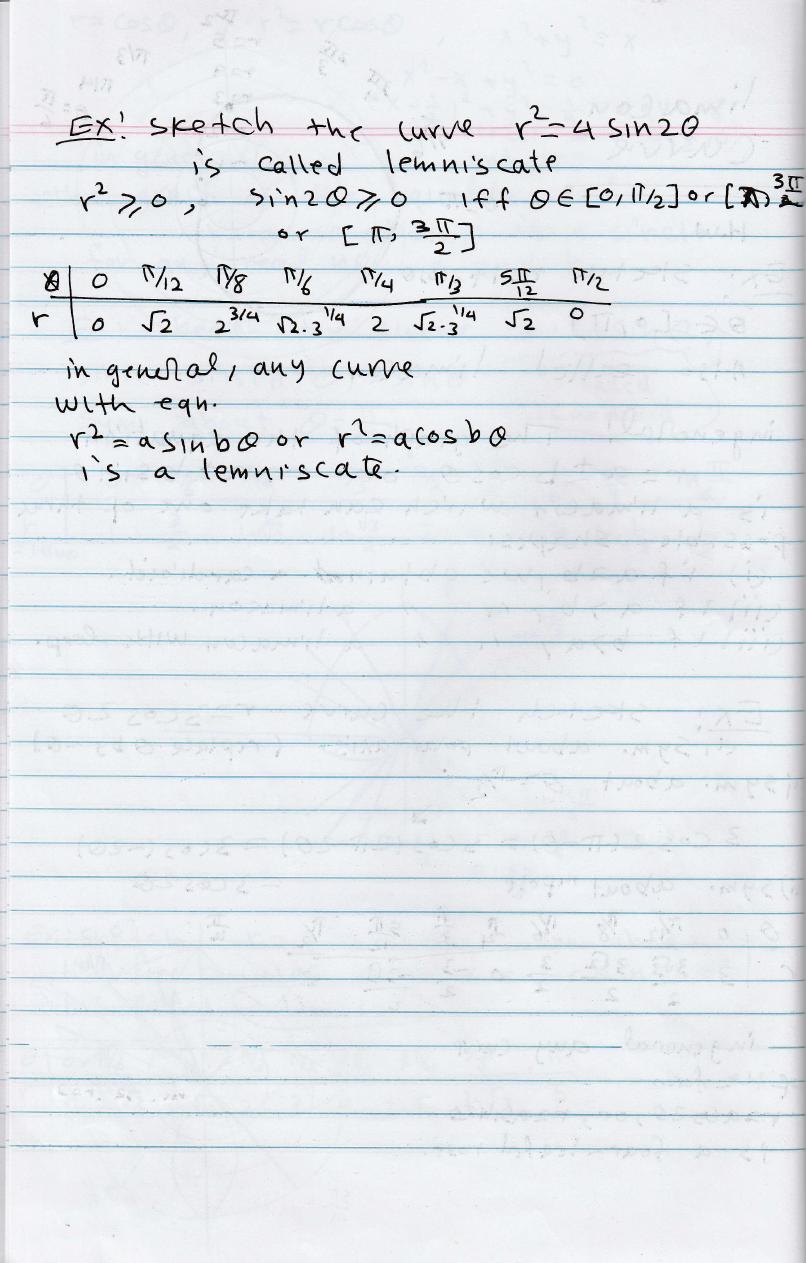 Ex: sketch the curve r² = 4 sin2θ
is called lemniscate
r² ⩾ 0, sin2θ ⩾ 0 iff θ ∈ [0, π/2] or [
or [π, 3π/2]
θ | 0 π/12 π/8 π/6 π/4 π/3 5π/12 π/2
r | 0 √2 2^3/4 √2·3^1/4 2 √2·3^1/4 √2 0
in general, any curve
with eqn.
r² = a sin bθ or r² = a cos bθ
is a lemniscate.